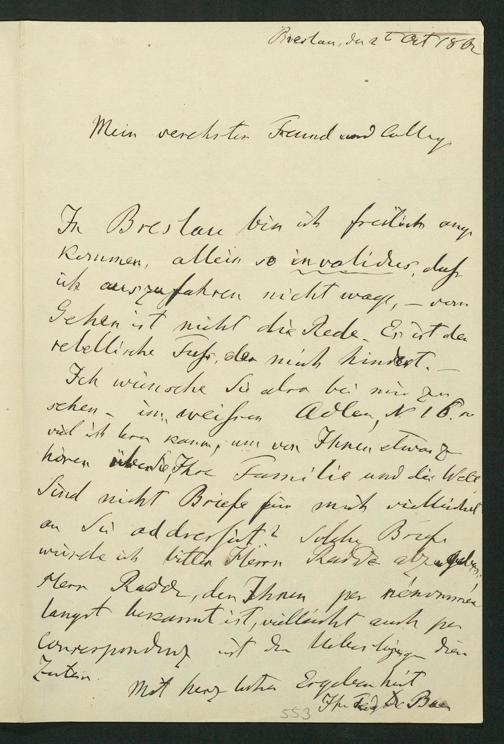 Breslau, den 2 Oct 186
Mein verehrter Freund und College
In Breslau bin ich freilich ange
kommen, allein so invalidus, daß
ich auszufahren nicht wage, – vom
Gehen ist nicht die Rede. Es ist der
rebellische Fuß, der mich hindert. –
Ich wünsche Sie also bei mir zu
sehen – im weißen Adler, N 16.
viel ich kann, um von Ihnen etwas zu
hören über Ihre Familie und die Welt
Sind nicht Briefe für mich vielleicht
an Sie addressirt? Solche Briefe
würde ich bitten Herrn Radde abzugeben.
Herr Radde, der Ihnen per renommée
längst bekannt ist, vielleicht auch per
Correspondenz ist der Ueberbringer dieser
Zeilen.
Mit herzlicher Ergebenheit
Ihr Baer
553